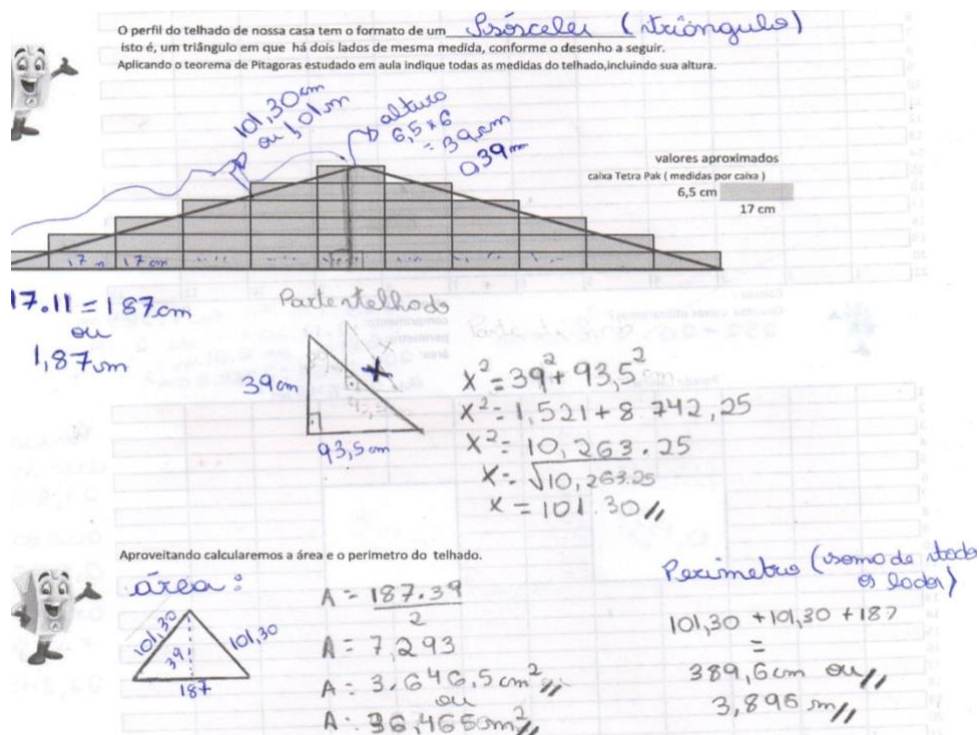 O perfil do telhado de nossa casa tem o formato de um Isósceles (triângulo)
isto é, um triângulo em que há dois lados de mesma medida, conforme o desenho a seguir.
Aplicando o teorema de Pitagoras estudado em aula indique todas as medidas do telhado,incluindo sua altura.
101,30cm
ou 1,01m
altura
6,5 x 6
= 39cm
0,39m
valores aproximados
caixa Tetra Pak ( medidas por caixa )
6,5 cm
17 cm
17 cm
17.11 = 187cm
ou
1,87m
Parte telhado
39cm
X
93,5cm
X² = 39² + 93,5²
X² = 1,521 + 8 742,25
X² = 10,263.25
X = √10,263.25
X = 101.30
Aproveitando calcularemos a área e o perimetro do telhado.
área:
101,30
39
101,30
187
A = 187.39
2
A = 7,293
A = 3.646,5 cm²
ou
Perimetro (soma de todos
os lados)
101,30 + 101,30 + 187
=
389,6cm ou
3,896 m